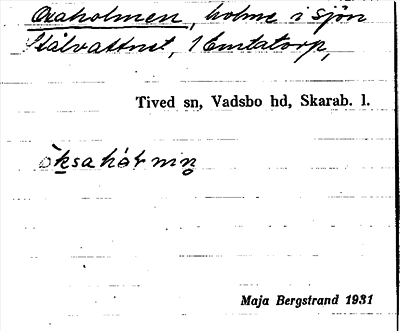 Oxaholmen, holme i sjön
Stålvattnet, 1 Emtatorp,
Tived sn, Vadsbo hd, Skarab. l.
Maja Bergstrand 1931